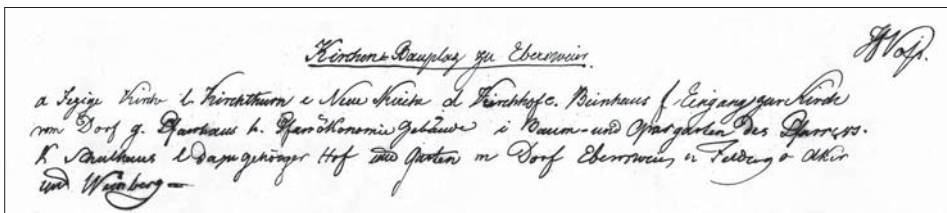 Kirchen Bauplaz zu Ebersweier.
a Jezige Kirche b. Kirchthurm c Neue Kirche d Kirchhof e. Beinhaus f Eingang zur Kirche
vom Dorf g. Pfarrhaus h. Pfarrökonomie Gebäude i Baum- und Grasgarten des Pfarrers.
K Schulhaus l dazu gehöriger Hof und Garten m Dorf Ebersweier, n Feldweg o Aker
und Weinberg